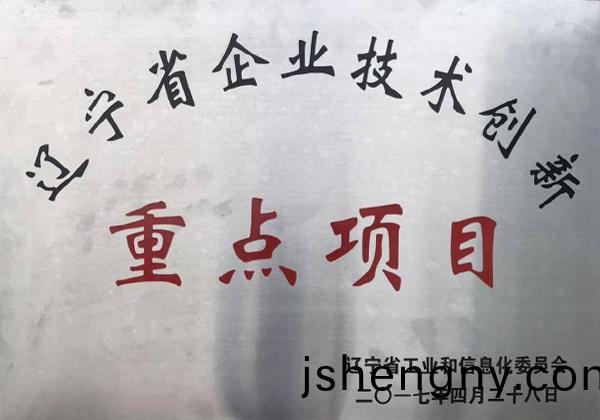 辽宁省企业技术创新
重点项目
辽宁省工业和信息化委员会
jshengny.com
二〇一七年四月二十八日